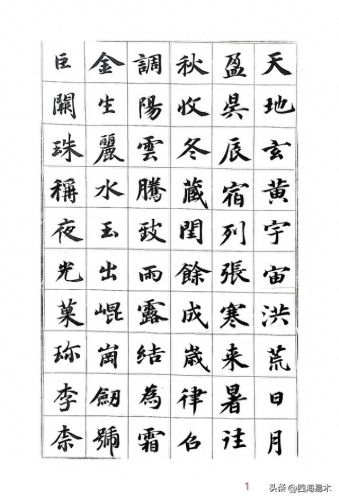 天地玄黃宇宙洪荒日月
盈昃辰宿列張寒来暑往
秋收冬藏閏餘成歲律召
調陽雲騰致雨露結為霜
金生麗水玉出崐崗劒號
巨闕珠稱夜光菓珎李柰
1
头条@四海易木